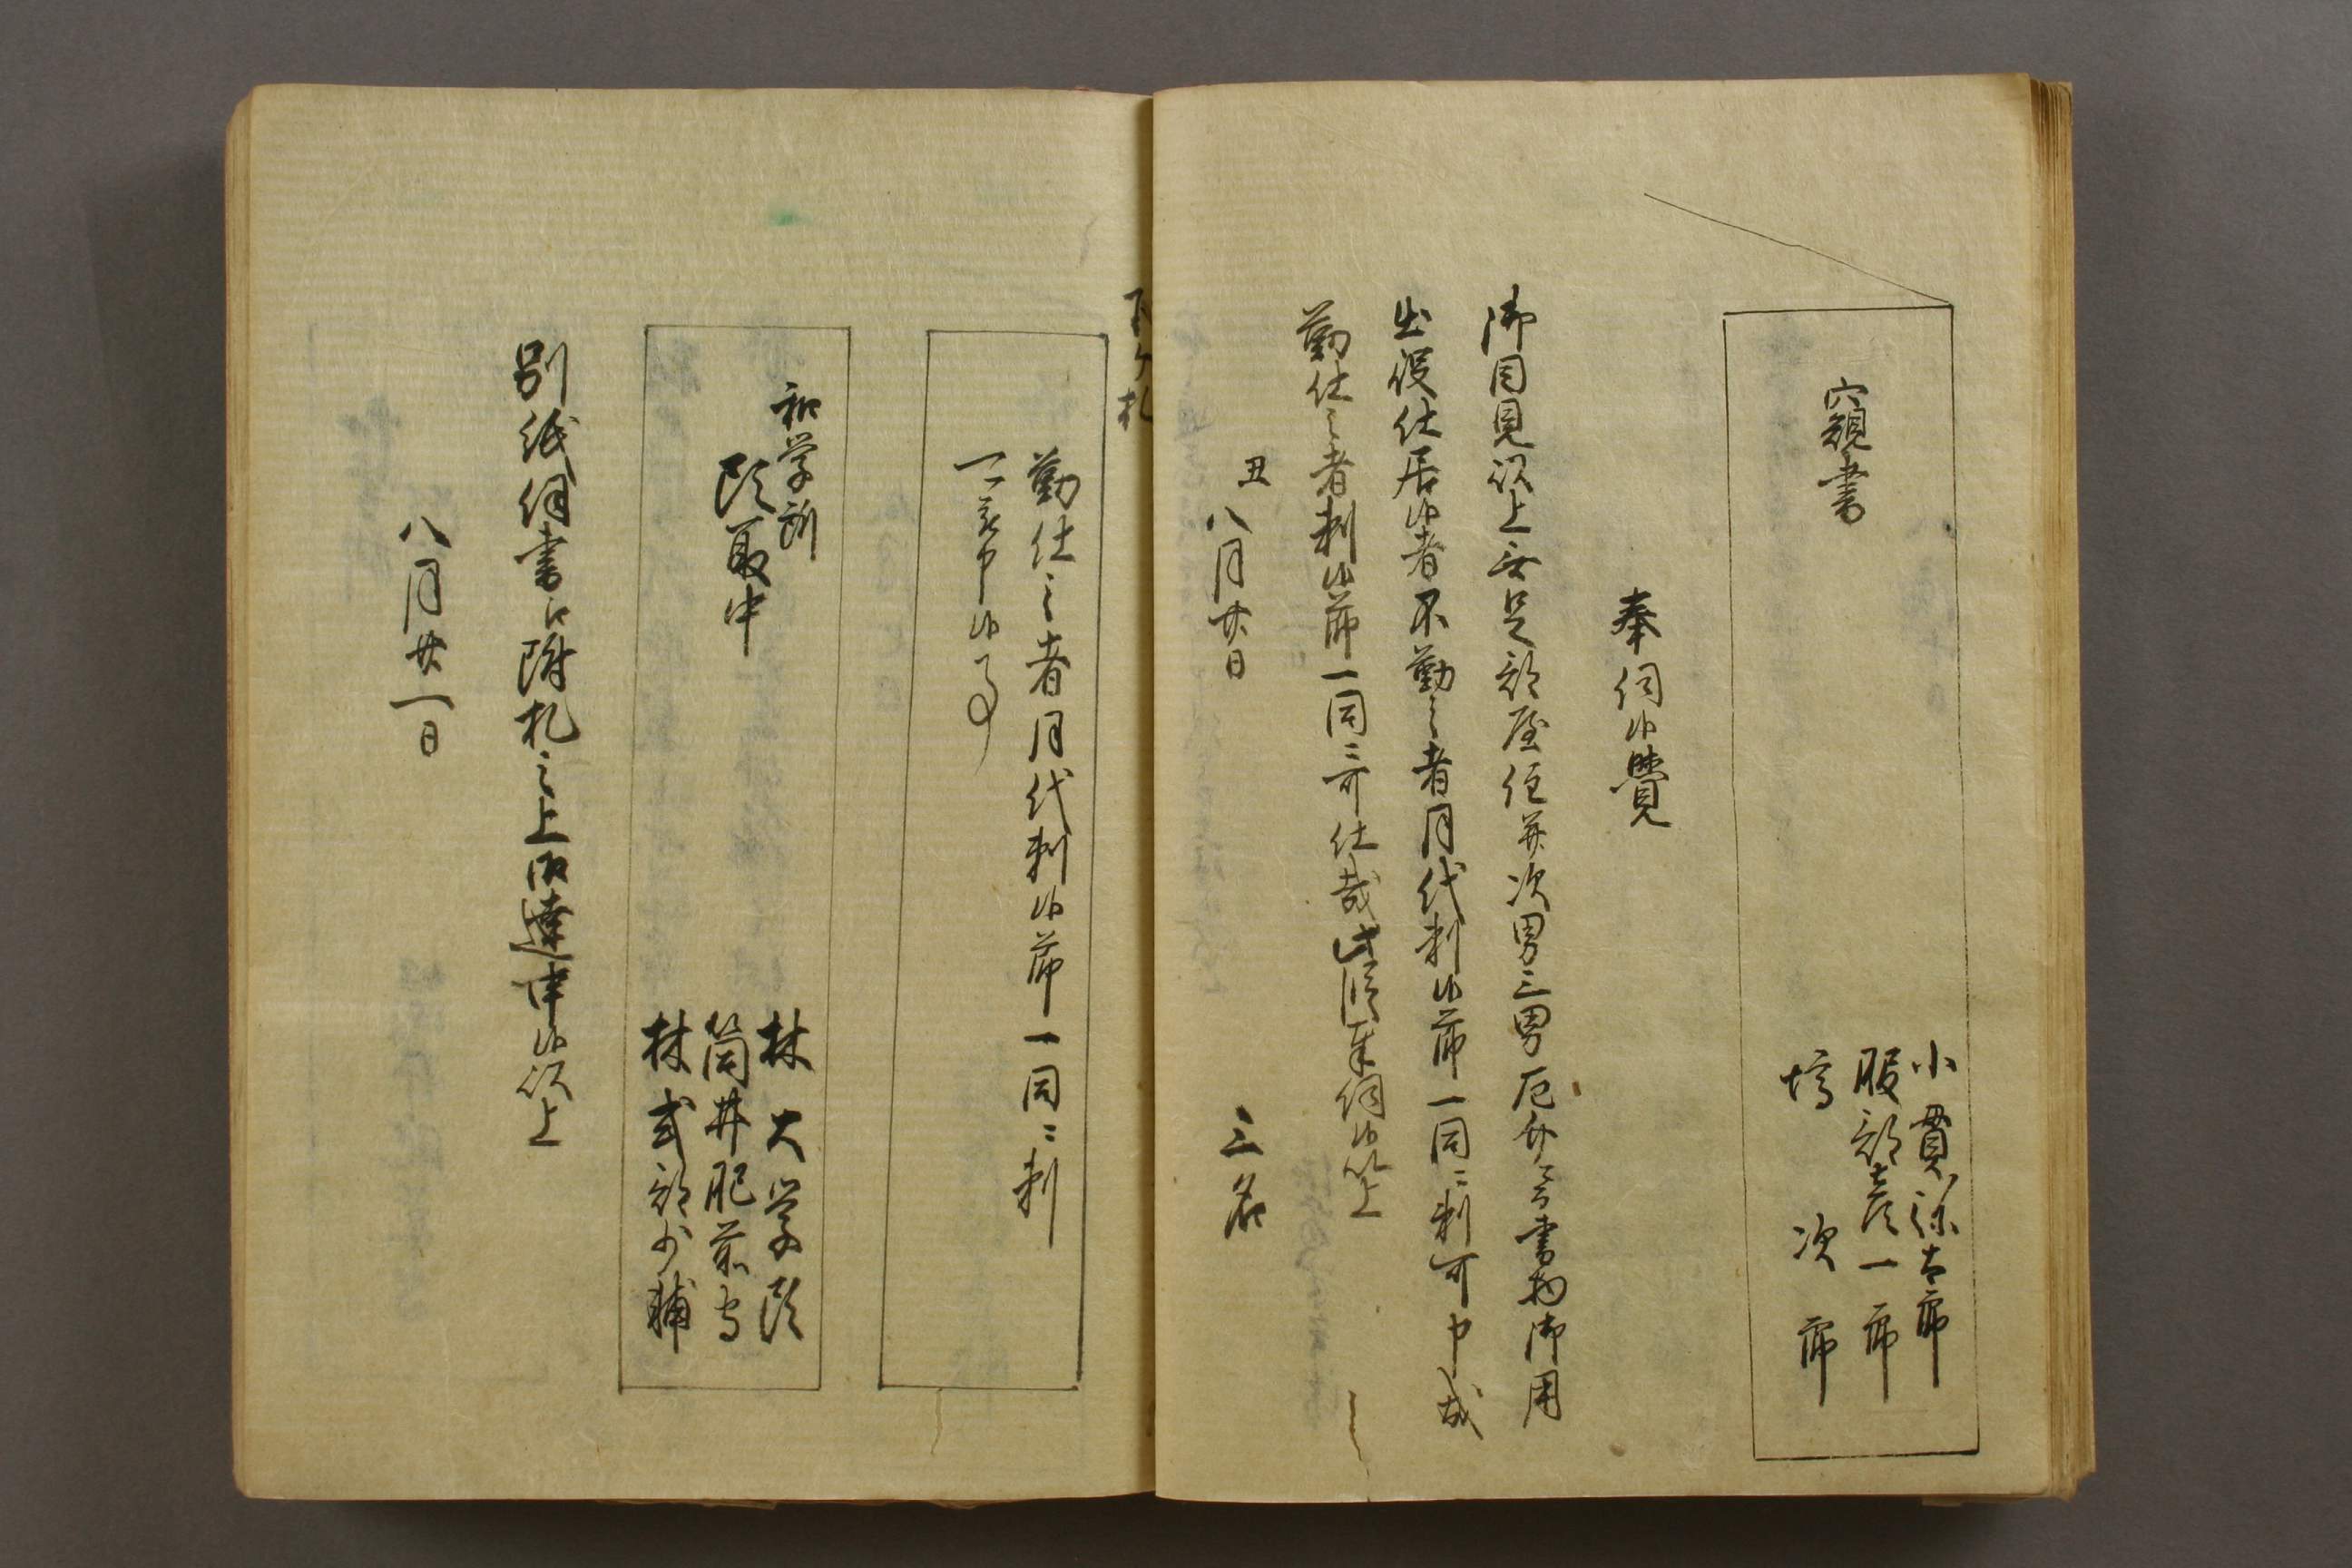 窺書
小貫弥太郎
服部彦一郎
塙 次郎
奉伺候覚
御目見以上無足部屋住并次男三男厄介ニ而書物御用
出役仕居候者不勤之者月代剃候節一同ニ剃可申哉
勤仕之者剃候節一同ニ可仕哉此段奉伺候以上
丑八月廿日
三名
下ケ札
勤仕之者月代剃候節一同ニ剃
可申候事
和学所
頭取中
林大学頭
筒井肥前守
林式部少輔
別紙伺書江附札之上御達申候以上
八月廿一日